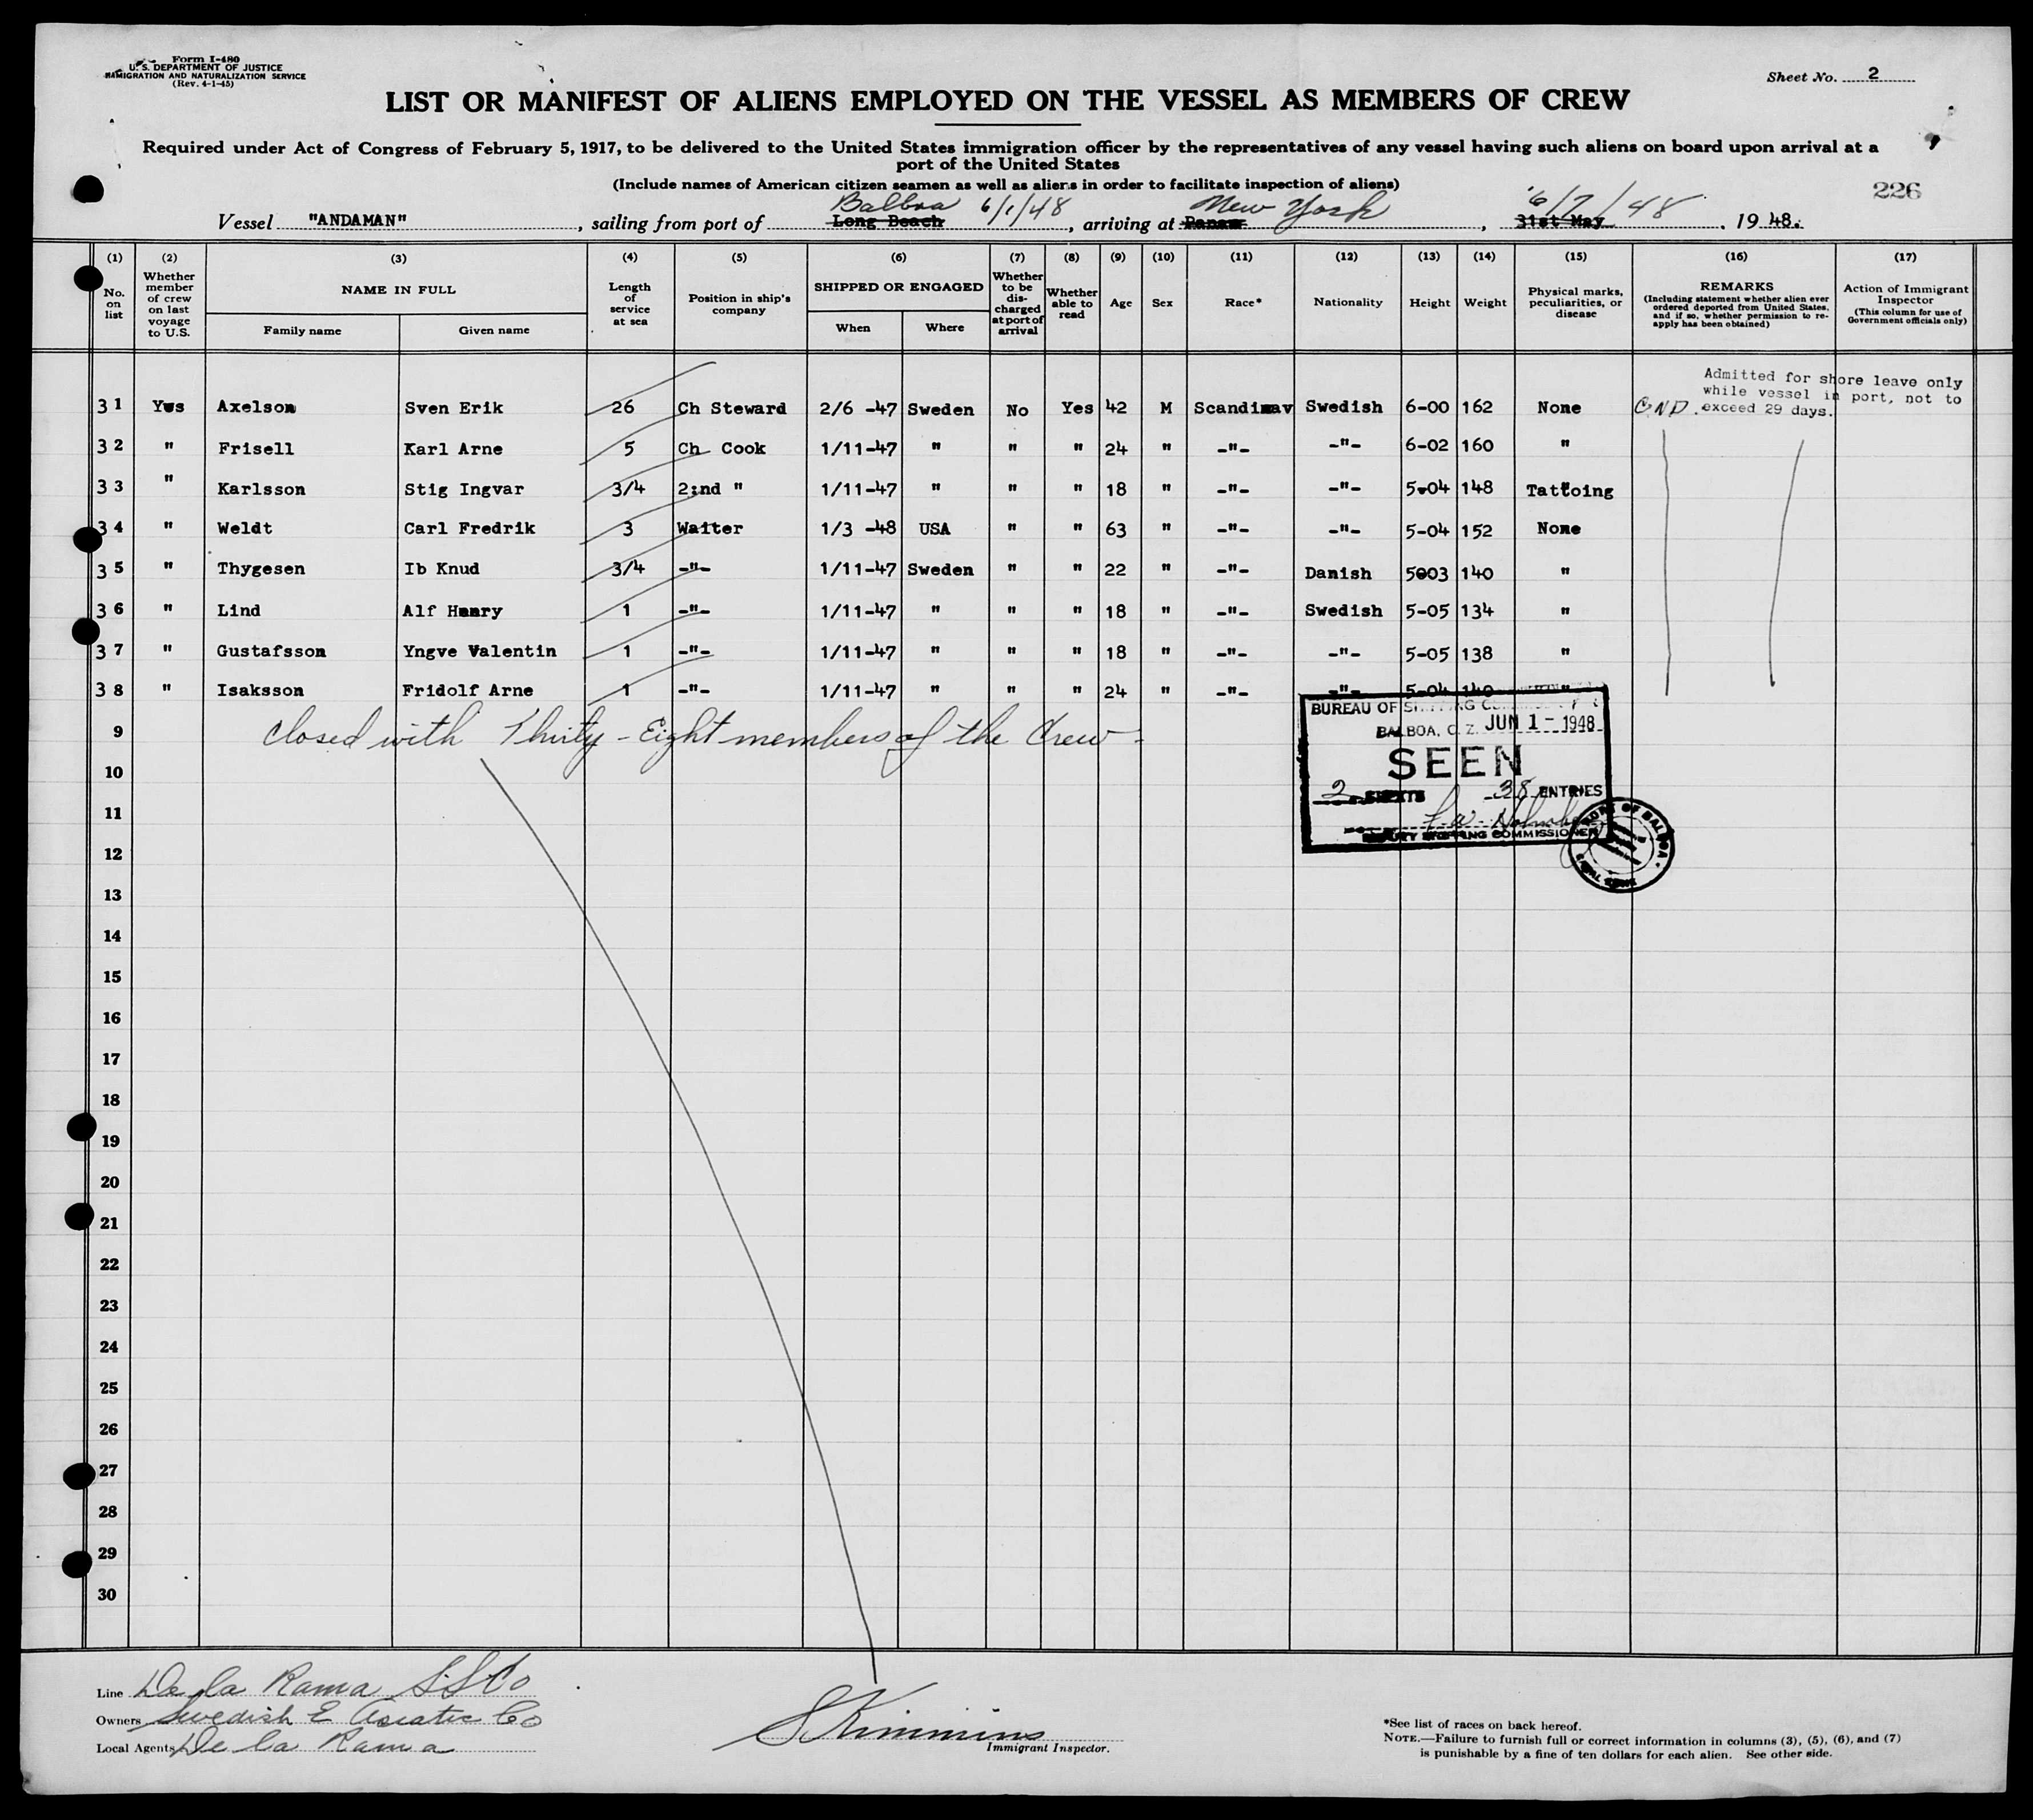 Form I-480
U. S. DEPARTMENT OF JUSTICE
IMMIGRATION AND NATURALIZATION SERVICE
(Rev. 4-1-45)
Sheet No. 2
LIST OR MANIFEST OF ALIENS EMPLOYED ON THE VESSEL AS MEMBERS OF CREW
Required under Act of Congress of February 5, 1917, to be delivered to the United States immigration officer by the representatives of any vessel having such aliens on board upon arrival at a
port of the United States
(Include names of American citizen seamen as well as aliens in order to facilitate inspection of aliens)
226
Balboa 6/1/48 New York 6/7/48
Vessel "ANDAMAN", sailing from port of Long Beach, arriving at Panam, 31st May, 1948.
(1) (2) (3) (4) (5) (6) (7) (8) (9) (10) (11) (12) (13) (14) (15) (16) (17)
No. on list
Whether member of crew on last voyage to U.S.
NAME IN FULL
Family name Given name
Length of service at sea
Position in ship's company
SHIPPED OR ENGAGED
When Where
Whether to be discharged at port of arrival
Whether able to read
Age
Sex
Race*
Nationality
Height
Weight
Physical marks, peculiarities, or disease
REMARKS
(Including statement whether alien ever ordered deported from United States, and if so, whether permission to re-apply has been obtained)
Action of Immigrant Inspector
(This column for use of Government officials only)
Admitted for shore leave only
while vessel in port, not to
exceed 29 days.
31 Yes Axelson Sven Erik 26 Ch Steward 2/6 -47 Sweden No Yes 42 M Scandinav Swedish 6-00 162 None
32 " Frisell Karl Arne 5 Ch Cook 1/11-47 " " " 24 " -"- -"- 6-02 160 "
33 " Karlsson Stig Ingvar 3/4 2:nd " 1/11-47 " " " 18 " -"- -"- 5-04 148 Tattoing
34 " Weldt Carl Fredrik 3 Waiter 1/3 -48 USA " " 63 " -"- -"- 5-04 152 None
35 " Thygesen Ib Knud 3/4 -"- 1/11-47 Sweden " " 22 " -"- Danish 5003 140 "
36 " Lind Alf Henry 1 -"- 1/11-47 " " " 18 " -"- Swedish 5-05 134 "
37 " Gustafsson Yngve Valentin 1 -"- 1/11-47 " " " 18 " -"- -"- 5-05 138 "
38 " Isaksson Fridolf Arne 1 -"- 1/11-47 " " " 24 " -"- -"- 5-04 140 "
9 Closed with Thirty-Eight members of the Crew-
BUREAU OF
BALBOA, C. Z. JUN 1 - 1948
SEEN
2 SHEETS 38 ENTRIES
DEPUTY SHIPPING COMMISSIONER
10
11
12
13
14
15
16
17
18
19
20
21
22
23
24
25
26
27
28
29
30
Line De la Rama S S Co
Owners Swedish E Asiatic Co
Local Agents De la Rama
SKimmins
Immigrant Inspector.
*See list of races on back hereof.
NOTE.—Failure to furnish full or correct information in columns (3), (5), (6), and (7)
is punishable by a fine of ten dollars for each alien. See other side.